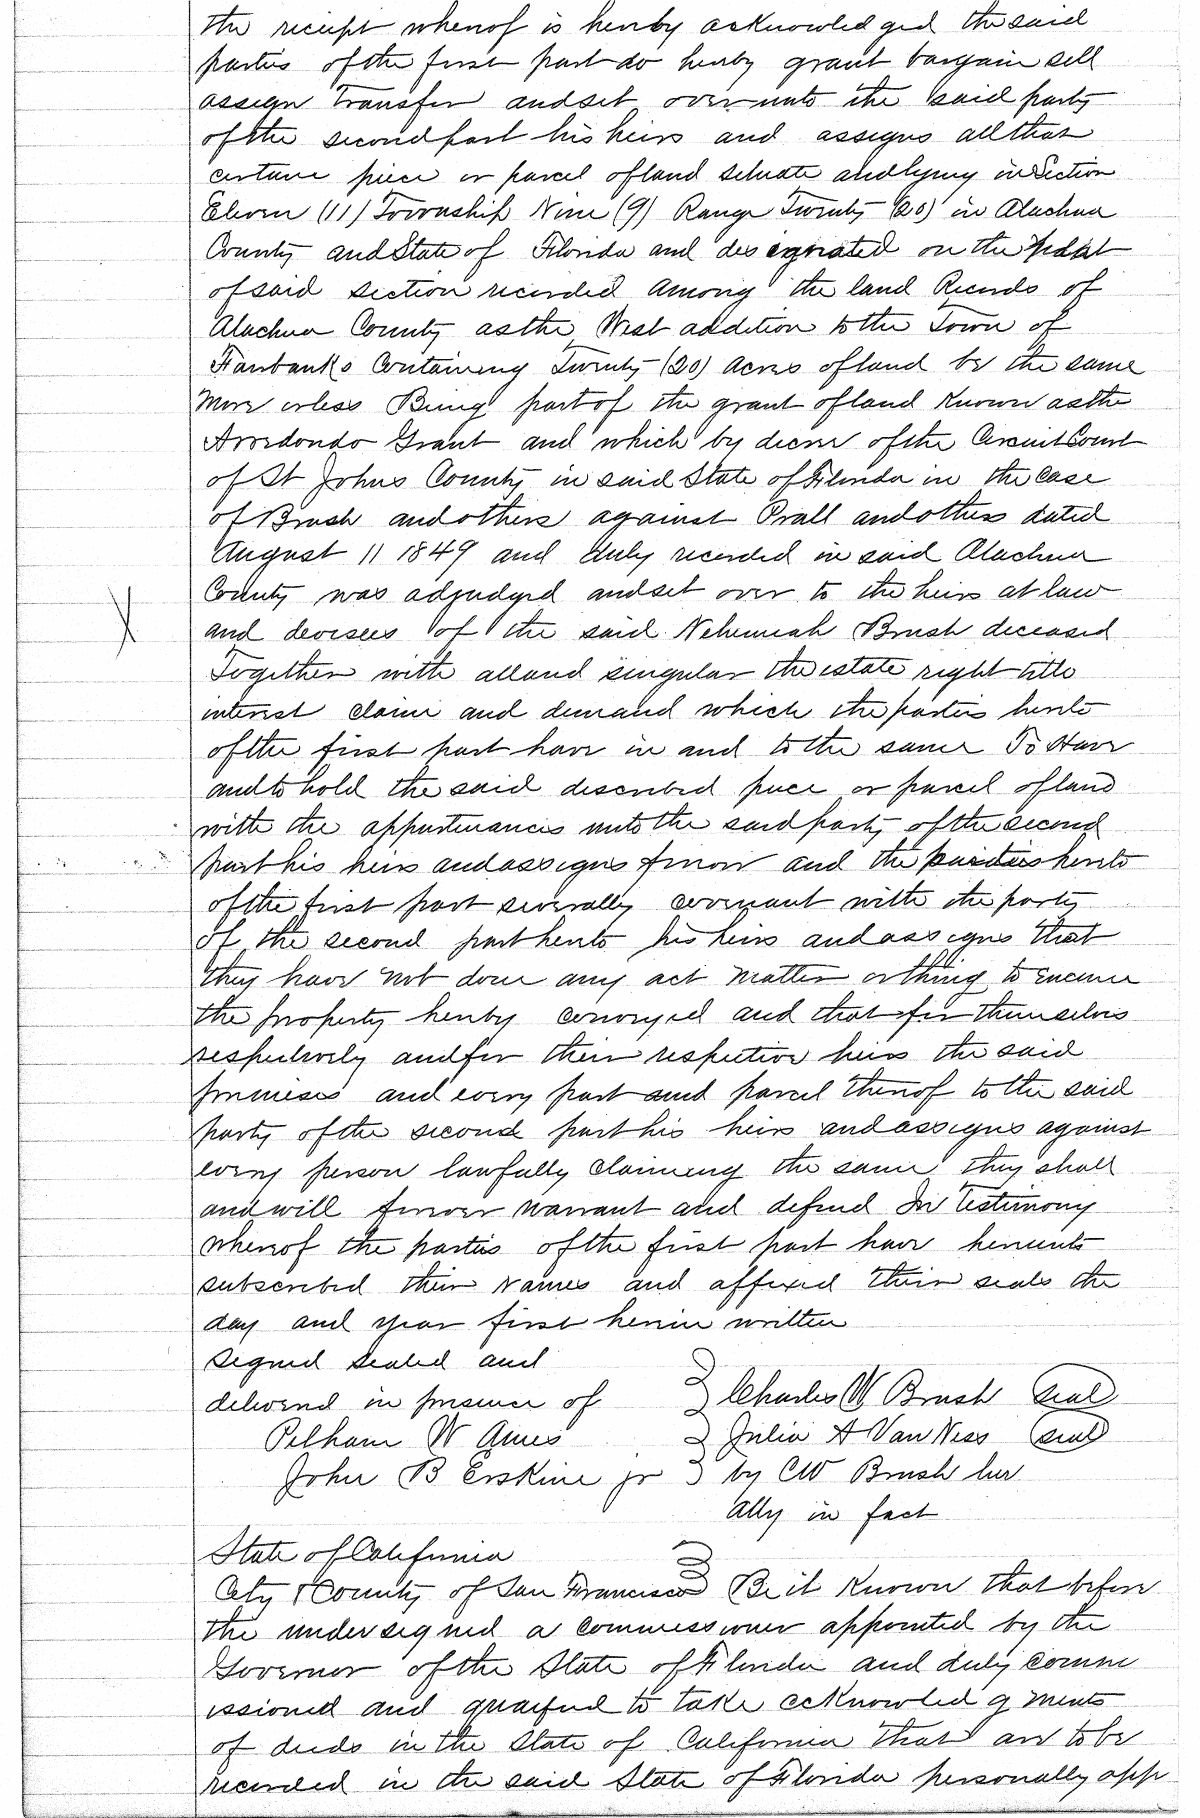 the receipt whereof is hereby acknowledged the said
parties of the first part do hereby grant bargain sell
assign transfer and set over unto the said party
of the second part his heirs and assigns all that
certain piece or parcel of land situate and lying in Section
Eleven (11) Township Nine (9) Range Twenty (20) in Alachua
County and State of Florida and designated on the plat
of said section recorded among the land Records of
Alachua County as the West addition to the Town of
Fairbanks Containing Twenty (20) Acres of land be the same
More or less Being part of the grant of land Known as the
Arredondo Grant and which by decree of the Circuit Court
of St Johns County in said State of Florida in the Case
of Brush and others against Prall and others dated
August 11 1849 and duly recorded in said Alachua
County was adjudged and set over to the heirs at law
and devisees of the said Nehemiah Brush deceased
Together with all and singular the estate right title
interest claim and demand which the parties hereto
of the first part have in and to the same To Have
and to hold the said described piece or parcel of land
with the appurtenances unto the said party of the second
part his heirs and assigns forever and the parties hereto
of the first part severally covenant with the party
of the second part hereto his heirs and assigns that
they have not done any act matter or thing to encumer
the property hereby conveyed and that for themselves
respectively and for their respective heirs the said
premises and every part and parcel thereof to the said
party of the second part his heirs and assigns against
every person lawfully claiming the same they shall
and will forever warrant and defend In Testimony
whereof the parties of the first part have hereunto
subscribed their names and affixed their seals the
day and year first herein written
Signed sealed and
delivered in presence of Charles W Brush seal
Pelham W Ames Julia A Van Ness seal
John B Erskine jr by CW Brush her
Atty in fact
State of California
City & County of San Francisco Be it Known that before
the undersigned a commissioner appointed by the
Governor of the State of Florida and duly comm
issioned and qualified to take acknowledgments
of deeds in the State of California that are to be
recorded in the said State of Florida personally app